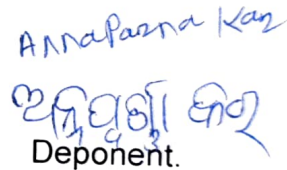 Annaparna Kar
ଅନ୍ନପୂର୍ଣ୍ଣା କର
Deponent.